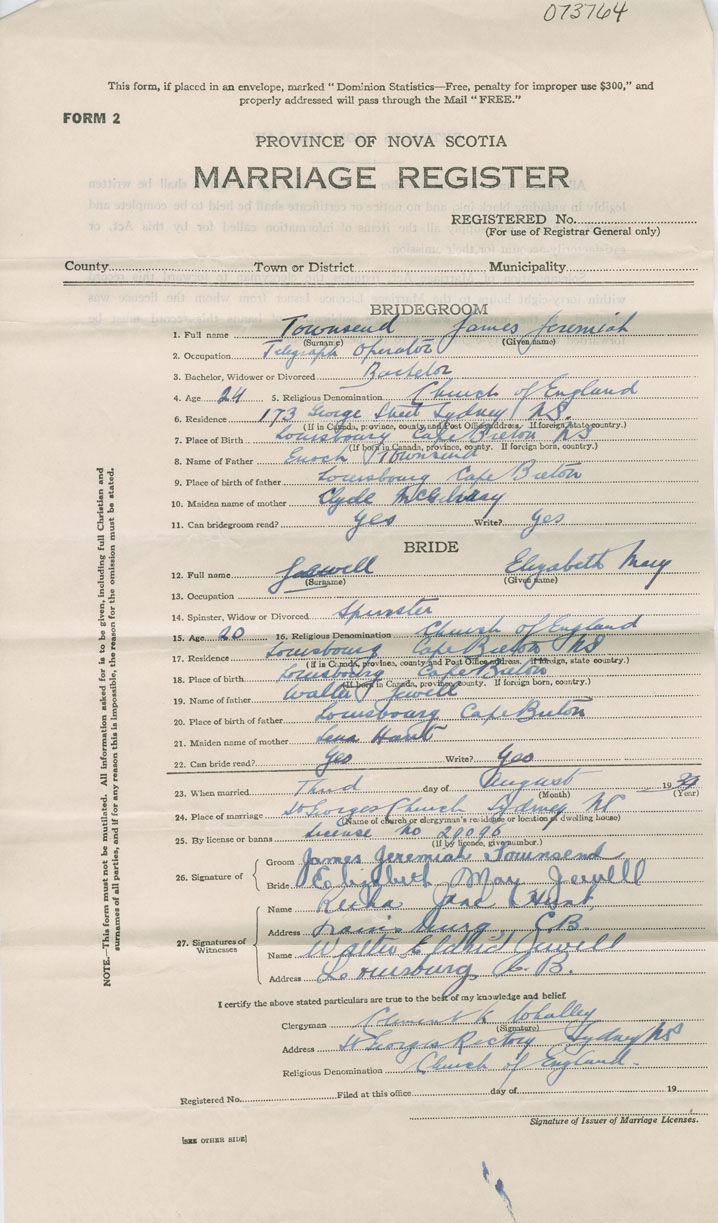 073764
This form, if placed in an envelope, marked "Dominion Statistics—Free, penalty for improper use $300," and
properly addressed will pass through the Mail "FREE."
FORM 2
PROVINCE OF NOVA SCOTIA
MARRIAGE REGISTER
REGISTERED No.
(For use of Registrar General only)
County Town or District Municipality
BRIDEGROOM
1. Full name Townsend James Jeremiah
(Surname) (Given name)
2. Occupation Telegraph Operator
3. Bachelor, Widower or Divorced Bachelor
4. Age 24 5. Religious Denomination Church of England
6. Residence 173 George Street Sydney NS.
(If in Canada, province, county and Post Office address. If foreign, state country.)
7. Place of Birth Louisbourg Cape Breton NS
(If born in Canada, province, county. If foreign born, country.)
8. Name of Father Enoch Townsend
9. Place of birth of father Louisbourg Cape Breton
10. Maiden name of mother Clyde McGilvary
11. Can bridegroom read? Yes Write? Yes
BRIDE
12. Full name Jewell Elizabeth Mary
(Surname) (Given name)
13. Occupation
14. Spinster, Widow or Divorced Spinster
15. Age 20 16. Religious Denomination Church of England
17. Residence Louisbourg Cape Breton NS
(If in Canada, province, county and Post Office address. If foreign, state country.)
18. Place of birth Louisbourg Cape Breton
(If born in Canada, province, county. If foreign born, country.)
19. Name of father Walter Jewell
20. Place of birth of father Louisbourg Cape Breton
21. Maiden name of mother Lena
22. Can bride read? Yes Write? Yes
23. When married Third day of August 19
(Month) (Year)
24. Place of marriage St Georges Church Sydney NS
(Name of church or clergyman's residence or location of dwelling house)
25. By license or banns License No 20096
(If by licence, give number.)
26. Signature of Groom James Jeremiah Townsend
Bride Elizabeth May Jewell
27. Signatures of Witnesses
Name Jane Hunt
Address C.B.
Name Walter Jewell
Address Louisburg C.B.
I certify the above stated particulars are true to the best of my knowledge and belief.
Clergyman Clement K Whalley
(Signature)
Address St Georges Rectory Sydney NS
Religious Denomination Church of England
Registered No. Filed at this office day of 19
Signature of Issuer of Marriage Licenses.
[SEE OTHER SIDE]
NOTE.—This form must not be mutilated. All information asked for is to be given, including full Christian and
surnames of all parties, and if for any reason this is impossible, the reason for the omission must be stated.